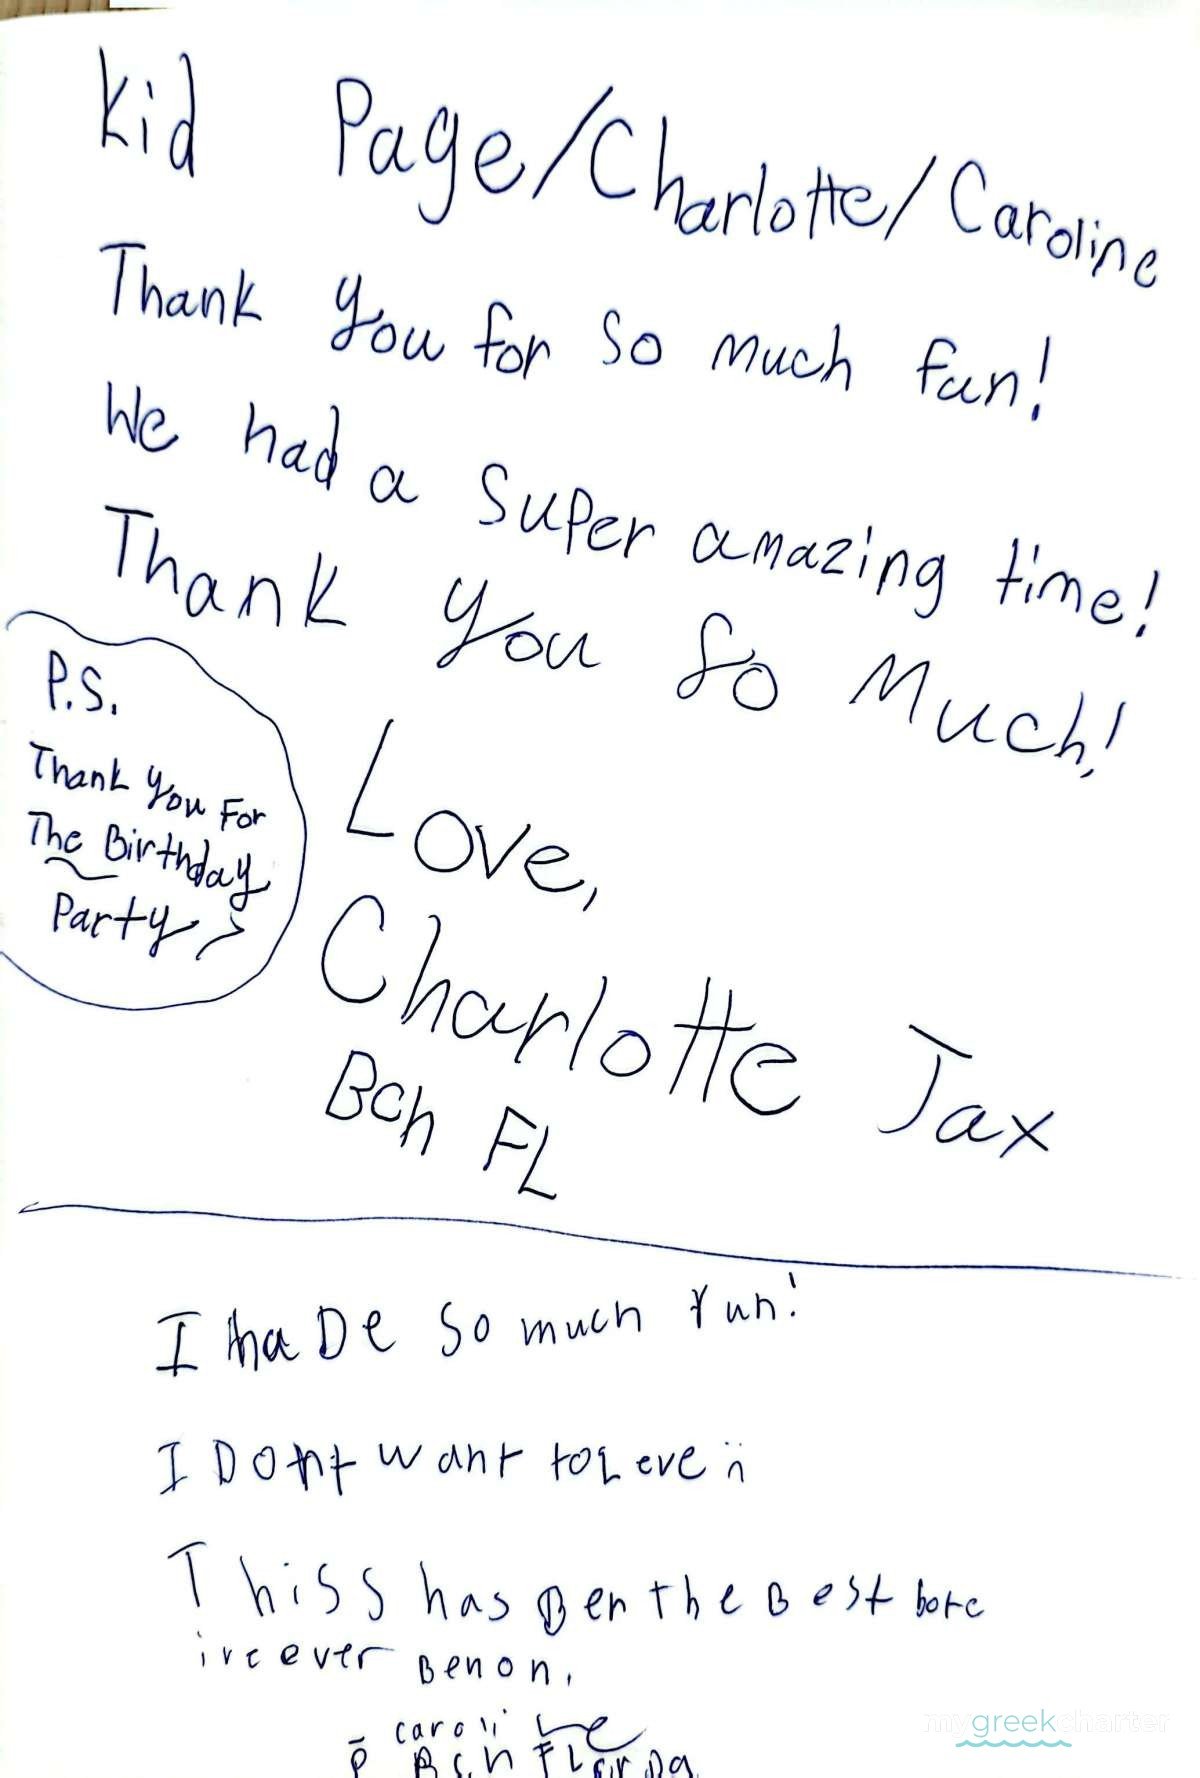 Kid Page/Charlotte/Caroline
Thank you for so much fun!
We had a super amazing time!
Thank you so Much!
P.S.
Thank you For
The Birthday
Party
Love,
Charlotte Jax
Bch FL
I haDe so much fun!
I DOnt want toLeve
Thiss has Ben the Best bote
ive ever Benon.
caroline
Bch FLorDa
mygreekcharter